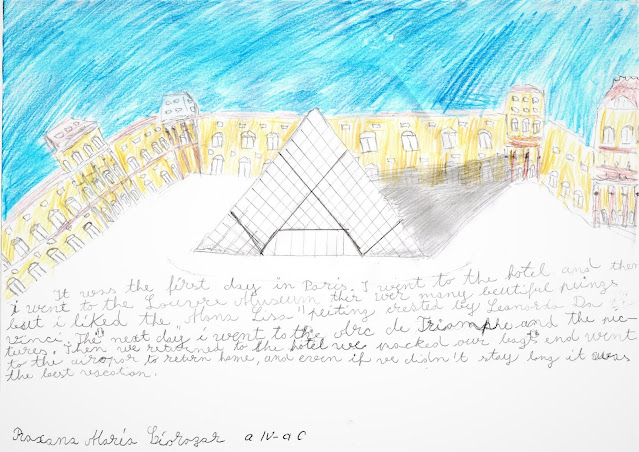 It was the first day in Paris. I went to the hotel and then
i went to the Louvre Museum ther wer many beutiful puings
but i liked the "Mona Lisa" peiting created by Leonardo Da
vinci. The next day i went to the Arc de Triompre and the pic-
tures. Then we returned to the hotel we packed our bags end went
to the airopor to return home, and even if we didn't stay long it was
the best vacation.
Maria a IV-a C